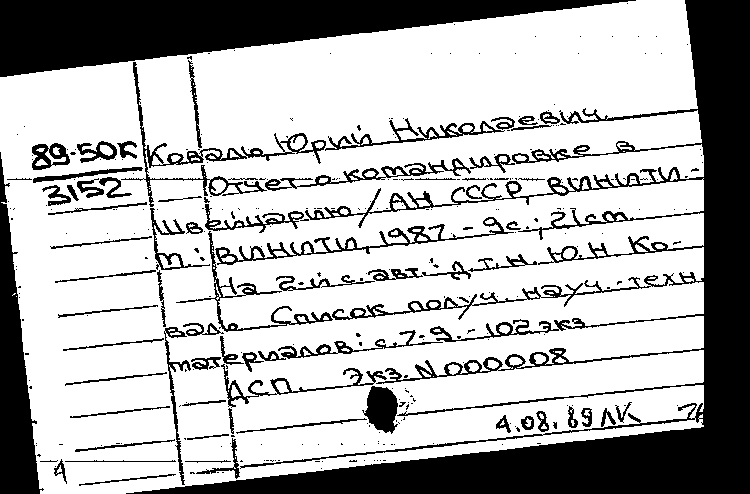 89-50К
3152
Коваль, Юрий Николаевич.
Отчет о командировке в
Швейцарию / АН СССР, ВИНИТИ.-
М.: ВИНИТИ, 1987.- 9с.; 21см.
На 2-й с. авт.: д.т.н. Ю.Н. Ко-
валь Список получ. науч.-техн.
материалов: с.7-9.- 102 экз
ДСП. Экз. N 000008
4.08.89 ЛК